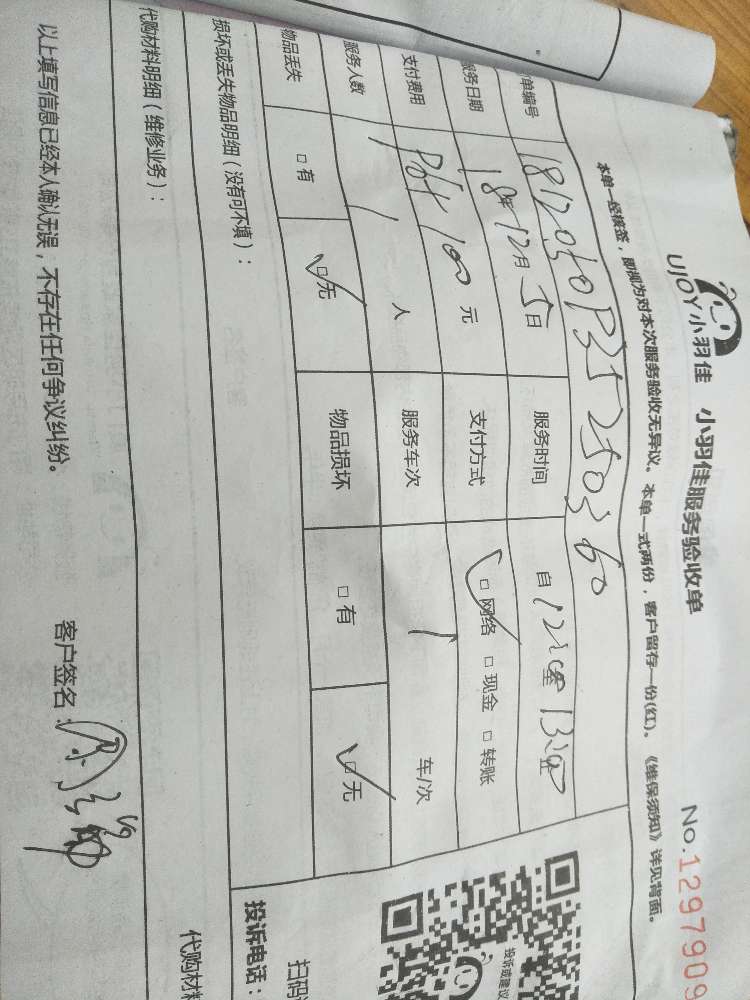 UJOY小羽佳 小羽佳服务验收单 No.1297909
本单一经核签，即视为对本次服务验收无异议。本单一式两份，客户留存一份(红)。《维保须知》详见背面。
单编号
服务日期 18年12月5日 服务时间 自
支付费用 100元 支付方式 □网络 □现金 □转账
服务人数 1人 服务车次 1 车/次
物品丢失 □有 □无 物品损坏 □有 □无
损坏或丢失物品明细（没有可不填）：
投诉或建议
投诉电话：
扫码
代购材料明细（维修业务）：
代购材料
以上填写信息已经本人确认无误，不存在任何争议纠纷。 客户签名：